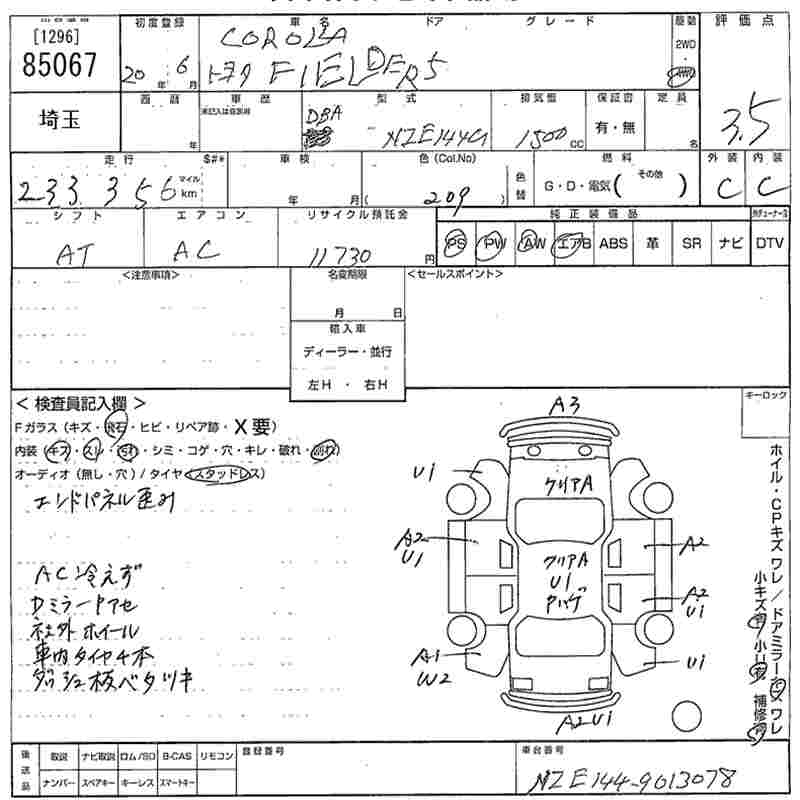 [1296]
85067
埼玉
初度登録
20年 6月
車名
COROLLA
トヨタ FIELDER
ドア
5
グレード
駆動
2WD
4WD
評価点
3.5
西暦
年
車歴
未記入は自家用
型式
DBA
NZE144G
排気量
1500 CC
保証書
有・無
定員
名
走行
233,356
マイル
km
S#*
車検
年 月
色 (Col.No)
( 209 )
色替
燃料
G・D・電気( その他 )
外装
C
内装
C
シフト
AT
エアコン
AC
リサイクル預託金
11730 円
純正装備品
PS PW AW エアB ABS 革 SR ナビ DTV
<注意事項>
名変期限
月 日
輸入車
ディーラー・並行
左H・右H
<セールスポイント>
キーロック
< 検査員記入欄 >
Fガラス (キズ・飛石・ヒビ・リペア跡・X要)
内装 (キズ・スレ・汚れ・シミ・コゲ・穴・キレ・破れ・割れ)
オーディオ (無し・穴) / タイヤ (スタッドレス)
エンドパネル歪み
AC冷えず
Dミラードアセ
社外ホイール
車内タイヤ4本
ダッシュ板ベタツキ
A3
U1
クリアA
A2
U1
クリアA
U1
ハゲ
A2
A2
U1
A1
W2
U1
A2 U1
ホイル・CPキズ ワレ / ドアミラーキズ ワレ
小キズ有 小U有 補修有
後送品
取説 ナビ取説 ロム/SD B-CAS リモコン
ナンバー スペアキー キーレス スマートキー
登録番号
車台番号
NZE144-9013078